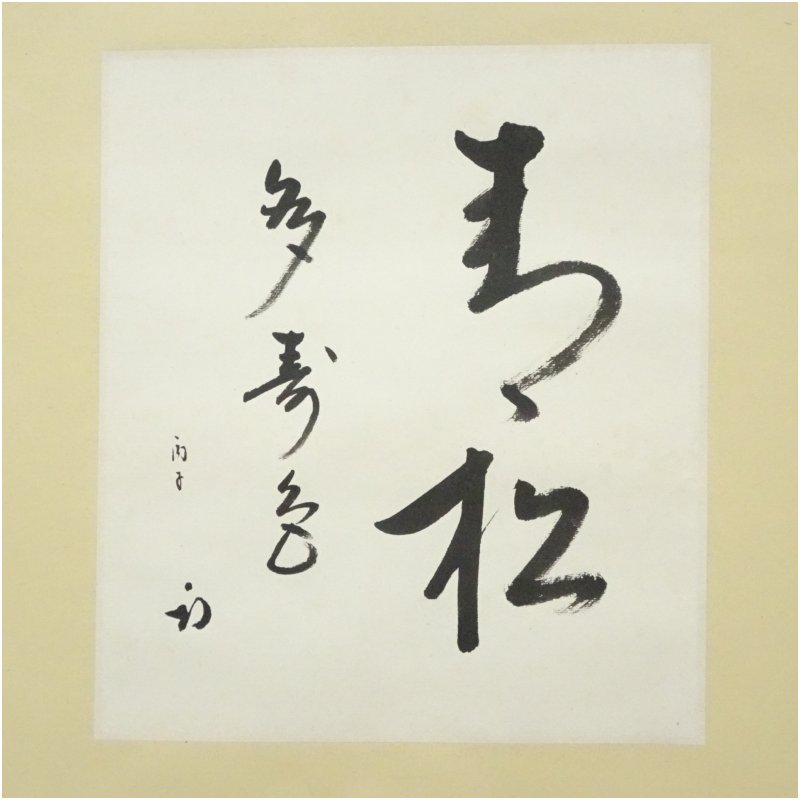 青松
多寿色
丙子